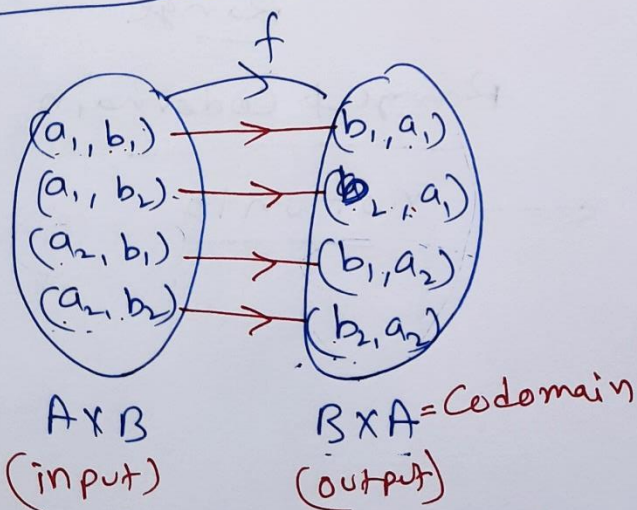 f
(a₁, b₁) (b₁, a₁)
(a₁, b₂) (b₂, a₁)
(a₂, b₁) (b₁, a₂)
(a₂, b₂) (b₂, a₂)
A×B B×A = Codomain
(input) (output)